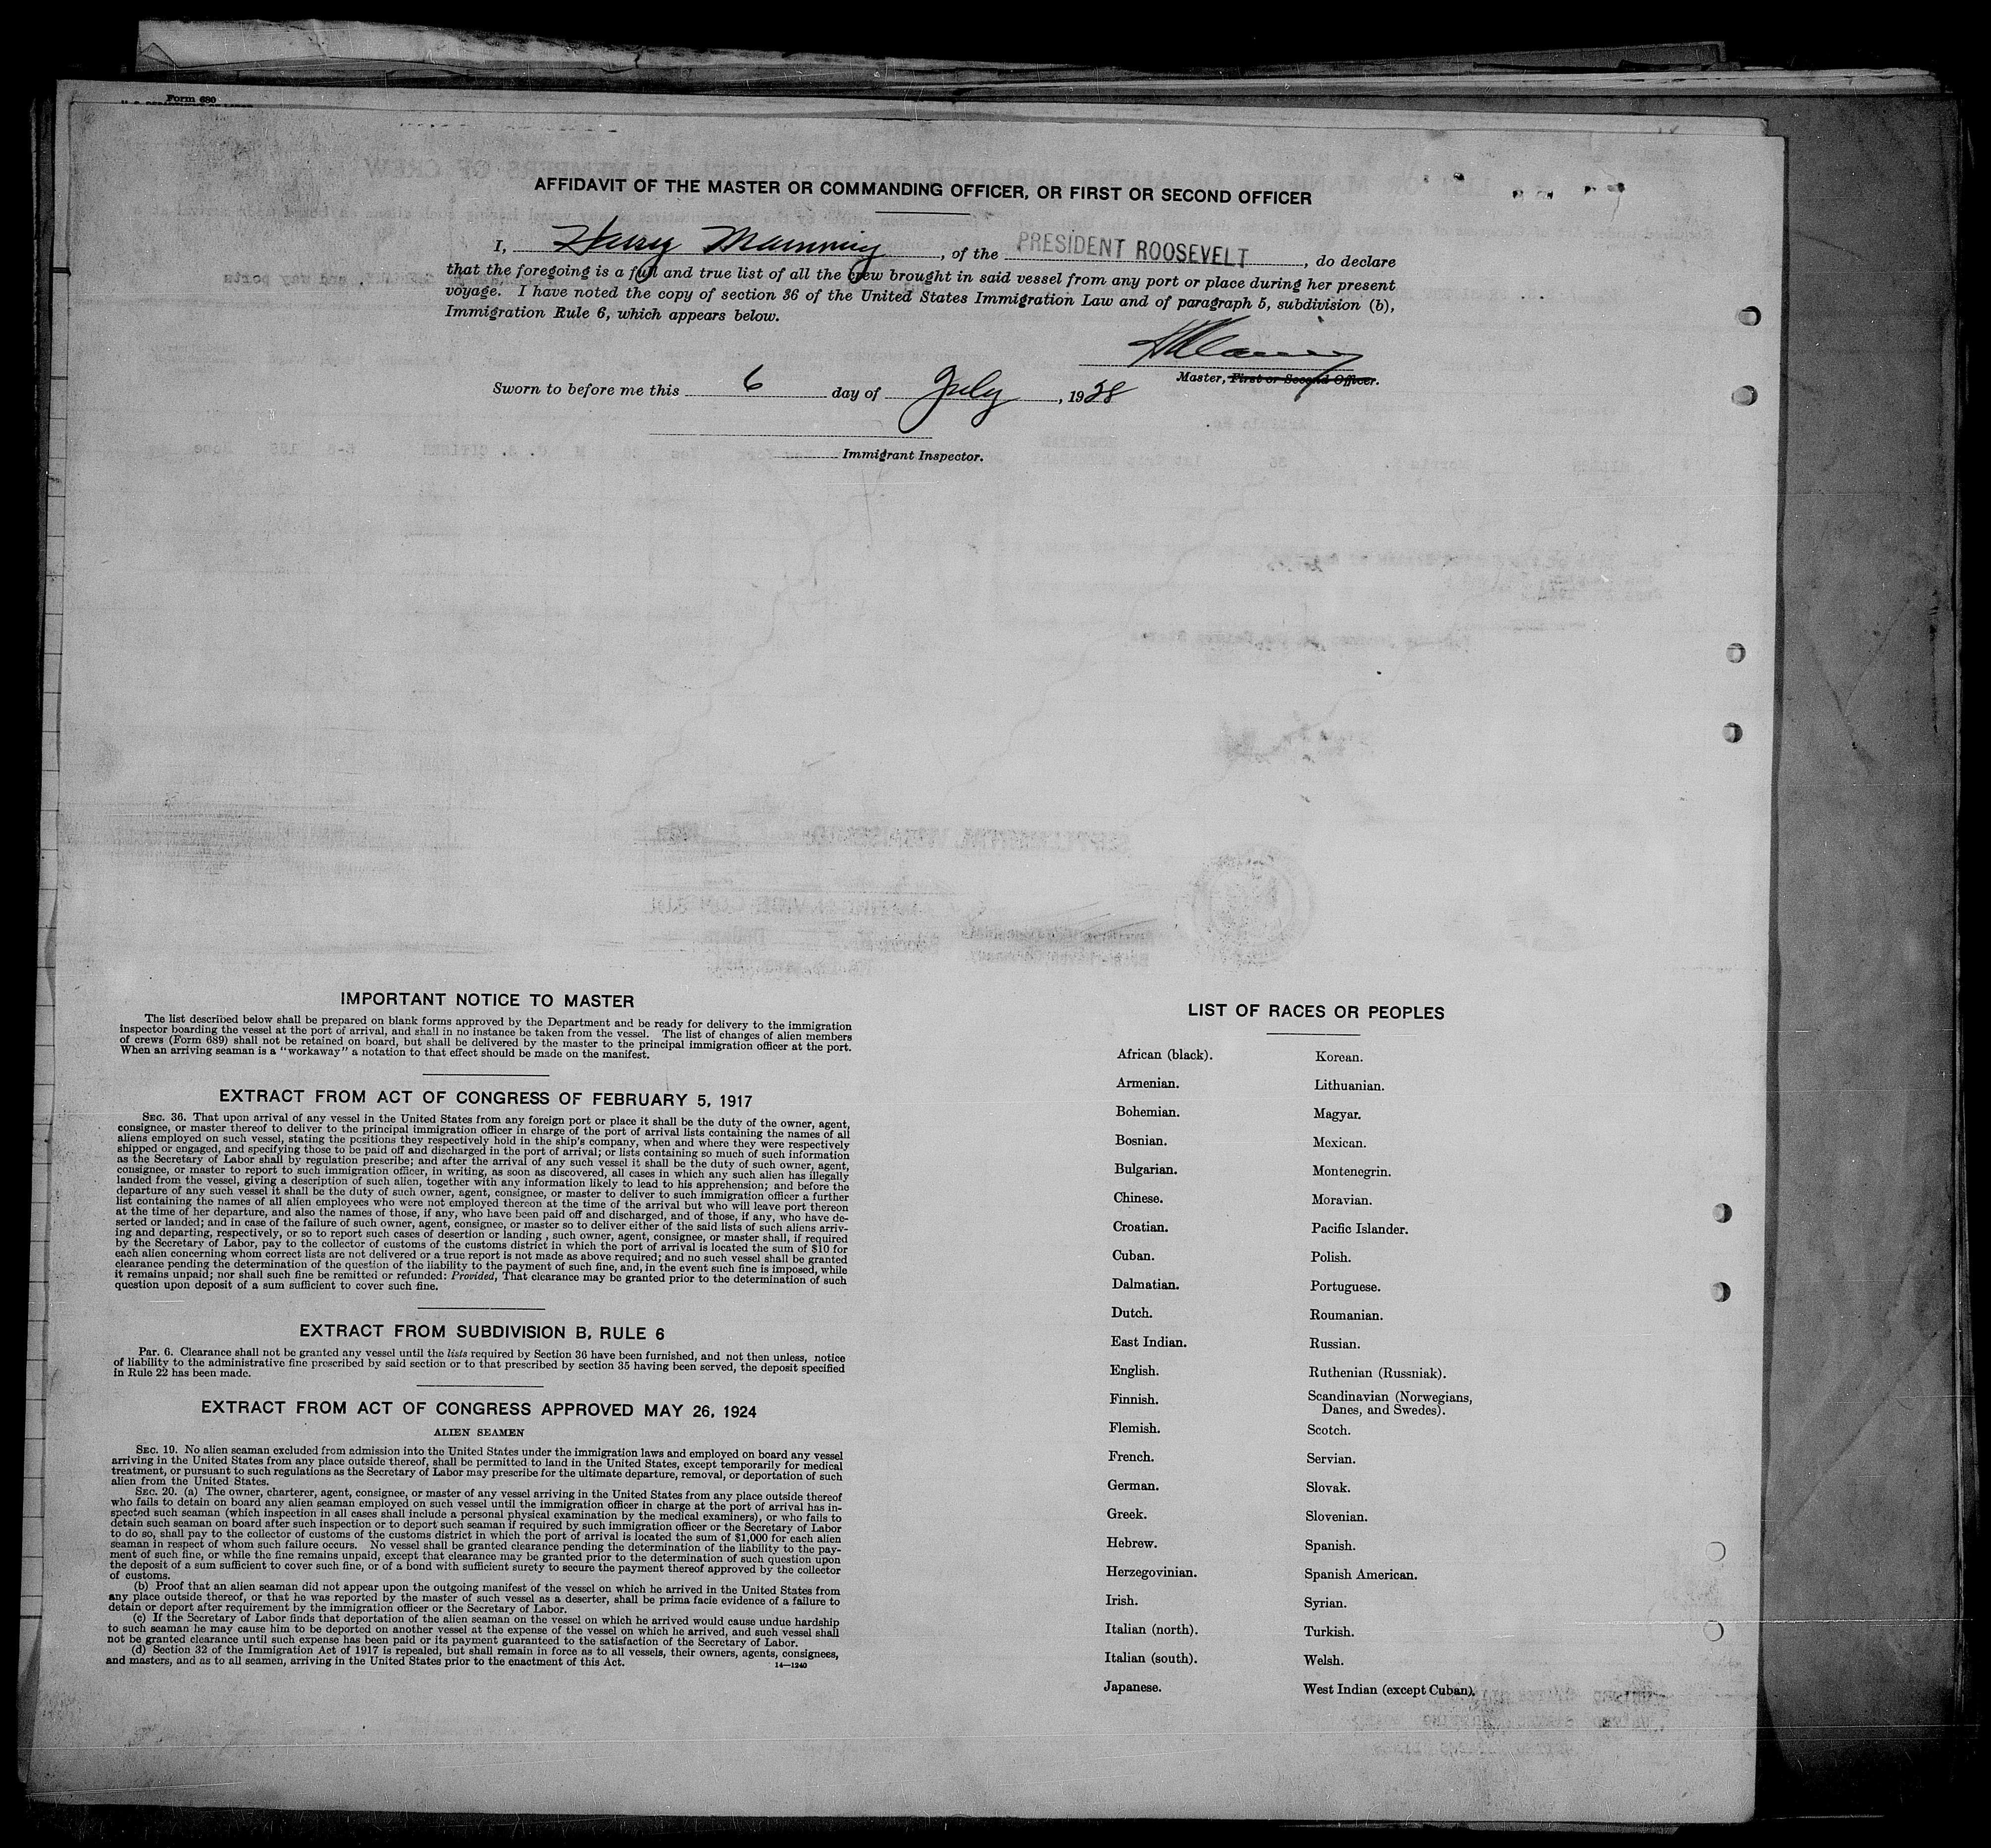 Form 680
AFFIDAVIT OF THE MASTER OR COMMANDING OFFICER, OR FIRST OR SECOND OFFICER
I, Harry Manning, of the PRESIDENT ROOSEVELT, do declare
that the foregoing is a full and true list of all the crew brought in said vessel from any port or place during her present
voyage. I have noted the copy of section 36 of the United States Immigration Law and of paragraph 5, subdivision (b),
Immigration Rule 6, which appears below.
HManning
Master, First or Second Officer.
Sworn to before me this 6 day of July, 1938
Immigrant Inspector.
IMPORTANT NOTICE TO MASTER
The list described below shall be prepared on blank forms approved by the Department and be ready for delivery to the immigration
inspector boarding the vessel at the port of arrival, and shall in no instance be taken from the vessel. The list of changes of alien members
of crews (Form 689) shall not be retained on board, but shall be delivered by the master to the principal immigration officer at the port.
When an arriving seaman is a "workaway" a notation to that effect should be made on the manifest.
EXTRACT FROM ACT OF CONGRESS OF FEBRUARY 5, 1917
SEC. 36. That upon arrival of any vessel in the United States from any foreign port or place it shall be the duty of the owner, agent,
consignee, or master thereof to deliver to the principal immigration officer in charge of the port of arrival lists containing the names of all
aliens employed on such vessel, stating the positions they respectively hold in the ship's company, when and where they were respectively
shipped or engaged, and specifying those to be paid off and discharged in the port of arrival; or lists containing so much of such information
as the Secretary of Labor shall by regulation prescribe; and after the arrival of any such vessel it shall be the duty of such owner, agent,
consignee, or master to report to such immigration officer, in writing, as soon as discovered, all cases in which any such alien has illegally
landed from the vessel, giving a description of such alien, together with any information likely to lead to his apprehension; and before the
departure of any such vessel it shall be the duty of such owner, agent, consignee, or master to deliver to such immigration officer a further
list containing the names of all alien employees who were not employed thereon at the time of the arrival but who will leave port thereon
at the time of her departure, and also the names of those, if any, who have been paid off and discharged, and of those, if any, who have de-
serted or landed; and in case of the failure of such owner, agent, consignee, or master so to deliver either of the said lists of such aliens arriv-
ing and departing, respectively, or so to report such cases of desertion or landing , such owner, agent, consignee, or master shall, if required
by the Secretary of Labor, pay to the collector of customs of the customs district in which the port of arrival is located the sum of $10 for
each alien concerning whom correct lists are not delivered or a true report is not made as above required; and no such vessel shall be granted
clearance pending the determination of the question of the liability to the payment of such fine, and, in the event such fine is imposed, while
it remains unpaid; nor shall such fine be remitted or refunded: Provided, That clearance may be granted prior to the determination of such
question upon deposit of a sum sufficient to cover such fine.
EXTRACT FROM SUBDIVISION B, RULE 6
Par. 6. Clearance shall not be granted any vessel until the lists required by Section 36 have been furnished, and not then unless, notice
of liability to the administrative fine prescribed by said section or to that prescribed by section 35 having been served, the deposit specified
in Rule 22 has been made.
EXTRACT FROM ACT OF CONGRESS APPROVED MAY 26, 1924
ALIEN SEAMEN
SEC. 19. No alien seaman excluded from admission into the United States under the immigration laws and employed on board any vessel
arriving in the United States from any place outside thereof, shall be permitted to land in the United States, except temporarily for medical
treatment, or pursuant to such regulations as the Secretary of Labor may prescribe for the ultimate departure, removal, or deportation of such
alien from the United States.
SEC. 20. (a) The owner, charterer, agent, consignee, or master of any vessel arriving in the United States from any place outside thereof
who fails to detain on board any alien seaman employed on such vessel until the immigration officer in charge at the port of arrival has in-
spected such seaman (which inspection in all cases shall include a personal physical examination by the medical examiners), or who fails to
detain such seaman on board after such inspection or to deport such seaman if required by such immigration officer or the Secretary of Labor
to do so, shall pay to the collector of customs of the customs district in which the port of arrival is located the sum of $1,000 for each alien
seaman in respect of whom such failure occurs. No vessel shall be granted clearance pending the determination of the liability to the pay-
ment of such fine, or while the fine remains unpaid, except that clearance may be granted prior to the determination of such question upon
the deposit of a sum sufficient to cover such fine, or of a bond with sufficient surety to secure the payment thereof approved by the collector
of customs.
(b) Proof that an alien seaman did not appear upon the outgoing manifest of the vessel on which he arrived in the United States from
any place outside thereof, or that he was reported by the master of such vessel as a deserter, shall be prima facie evidence of a failure to
detain or deport after requirement by the immigration officer or the Secretary of Labor.
(c) If the Secretary of Labor finds that deportation of the alien seaman on the vessel on which he arrived would cause undue hardship
to such seaman he may cause him to be deported on another vessel at the expense of the vessel on which he arrived, and such vessel shall
not be granted clearance until such expense has been paid or its payment guaranteed to the satisfaction of the Secretary of Labor.
(d) Section 32 of the Immigration Act of 1917 is repealed, but shall remain in force as to all vessels, their owners, agents, consignees,
and masters, and as to all seamen, arriving in the United States prior to the enactment of this Act.
14—1240
LIST OF RACES OR PEOPLES
African (black).
Armenian.
Bohemian.
Bosnian.
Bulgarian.
Chinese.
Croatian.
Cuban.
Dalmatian.
Dutch.
East Indian.
English.
Finnish.
Flemish.
French.
German.
Greek.
Hebrew.
Herzegovinian.
Irish.
Italian (north).
Italian (south).
Japanese.
Korean.
Lithuanian.
Magyar.
Mexican.
Montenegrin.
Moravian.
Pacific Islander.
Polish.
Portuguese.
Roumanian.
Russian.
Ruthenian (Russniak).
Scandinavian (Norwegians,
Danes, and Swedes).
Scotch.
Servian.
Slovak.
Slovenian.
Spanish.
Spanish American.
Syrian.
Turkish.
Welsh.
West Indian (except Cuban).